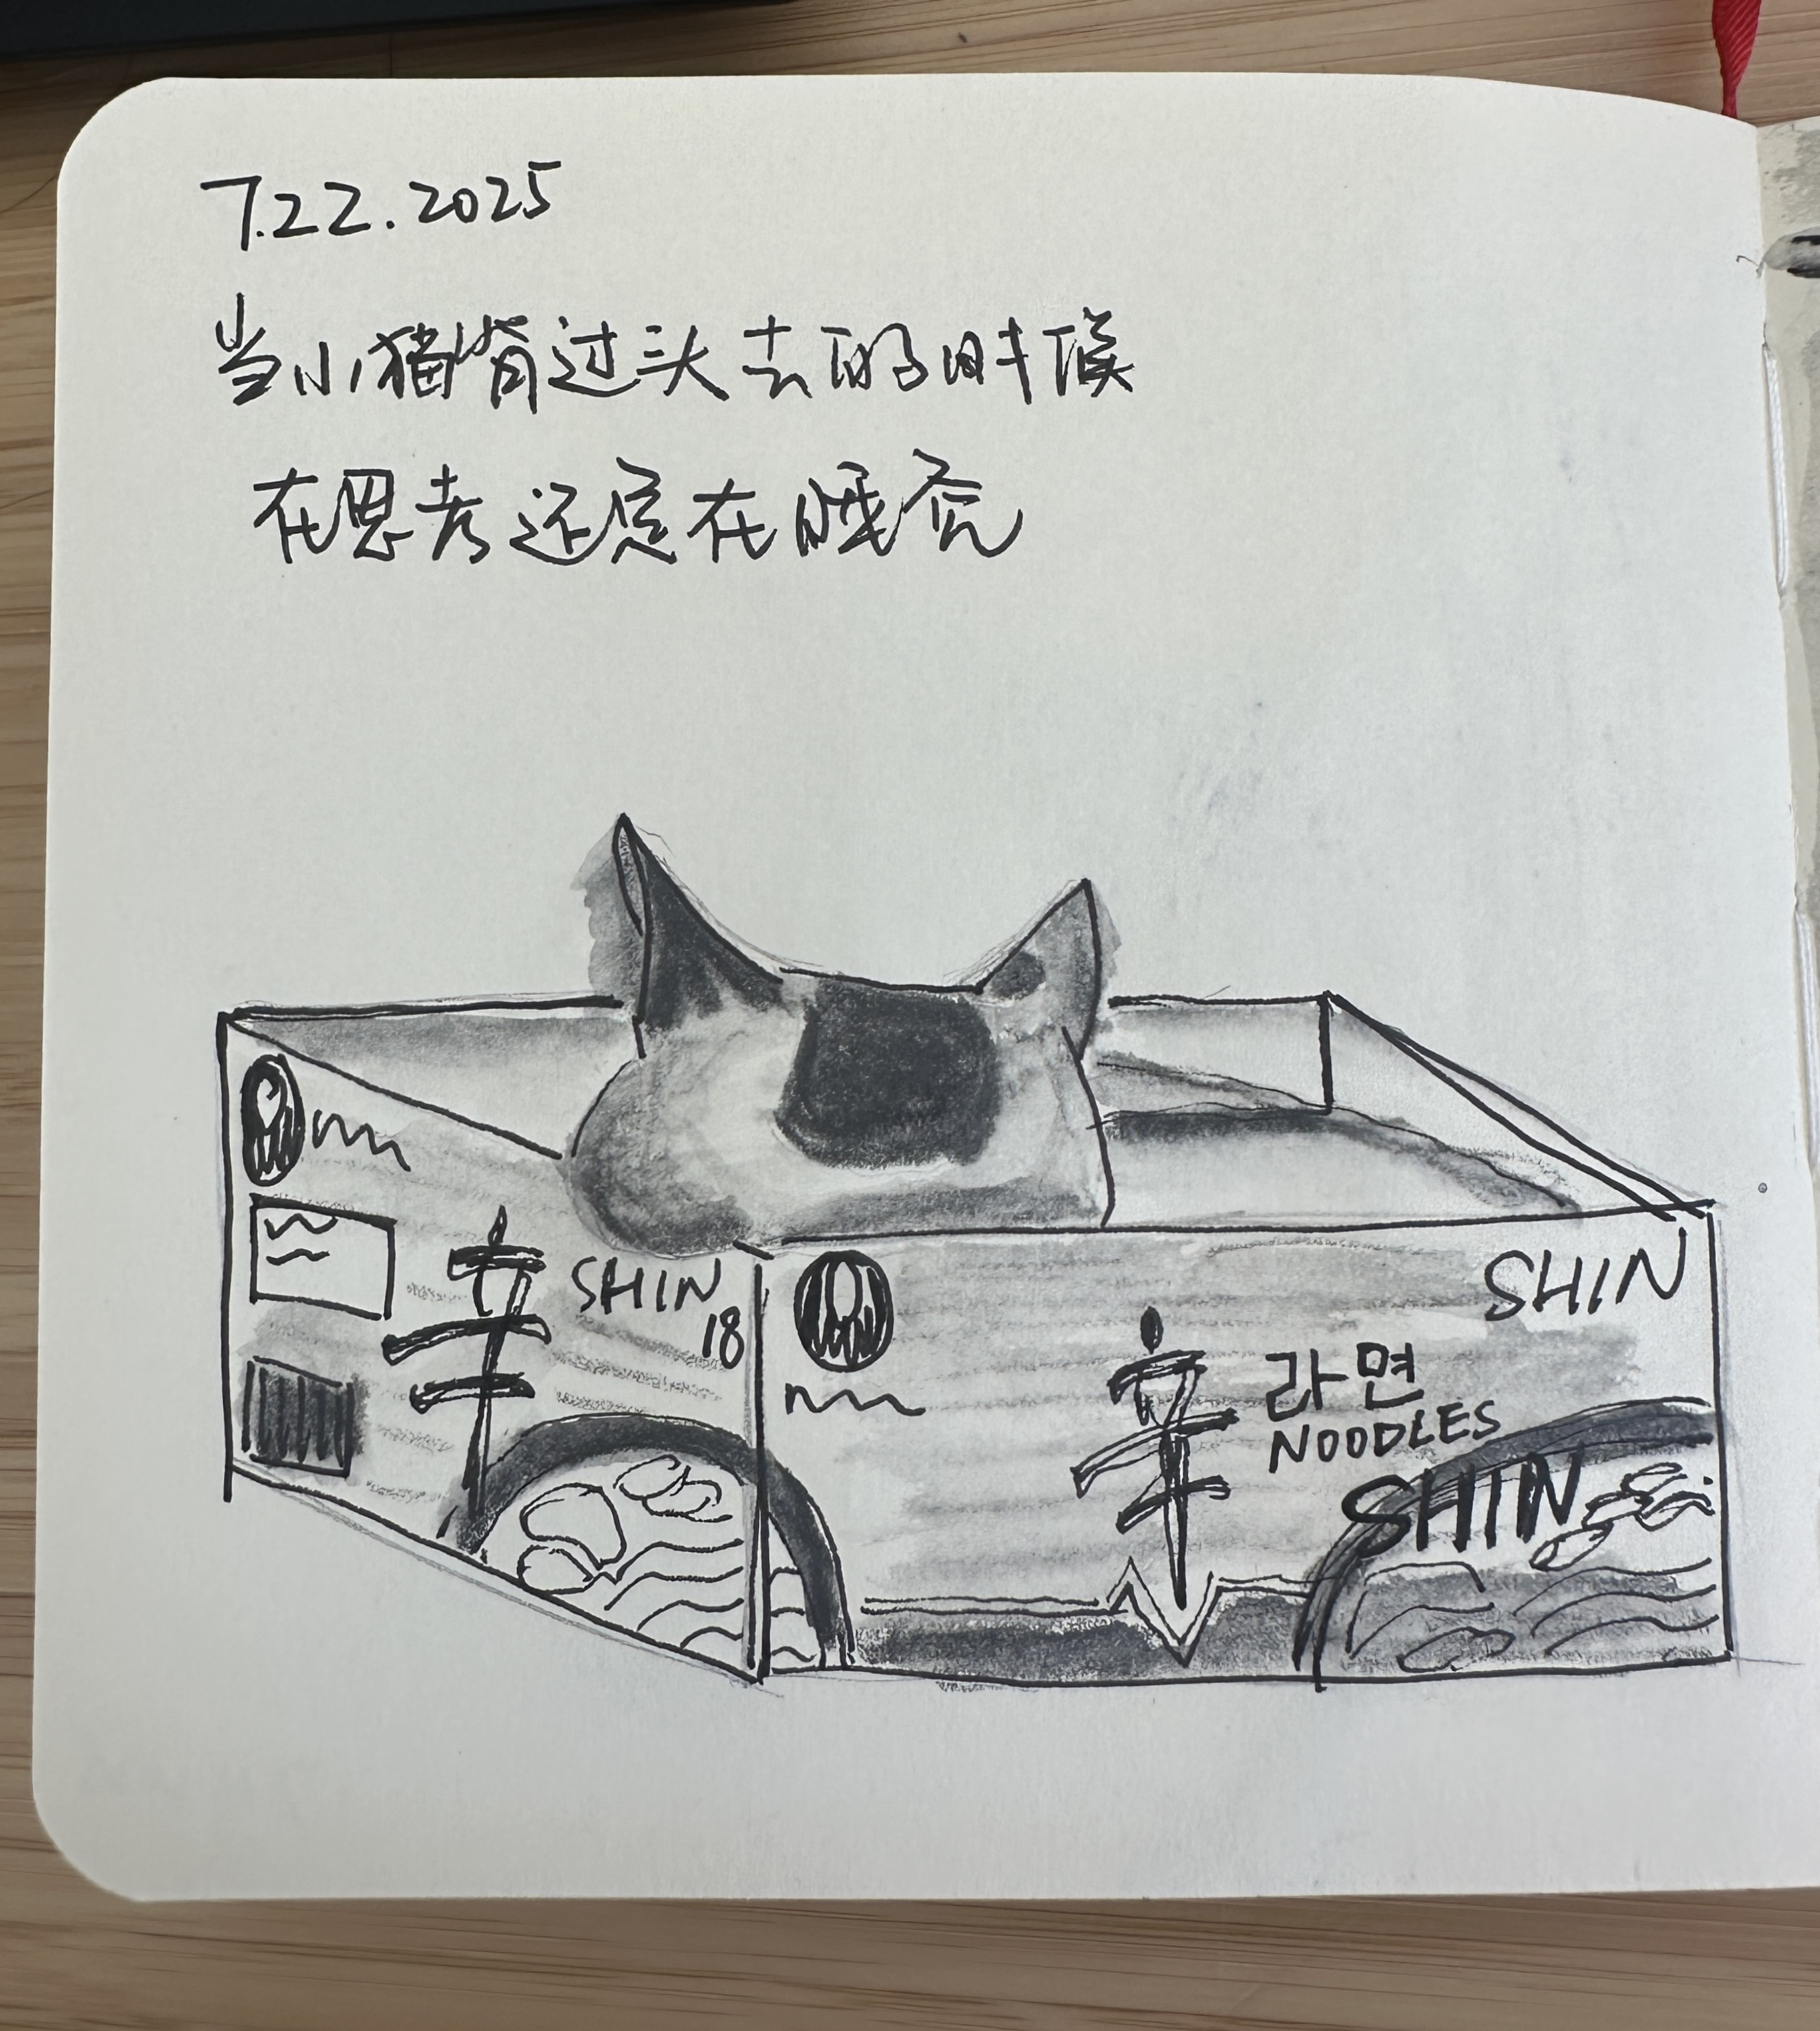 7.22.2025
当小猫背过头去的时候
在思考还是在睡觉
辛 SHIN
18
SHIN
辛 라면
NOODLES
SHIN